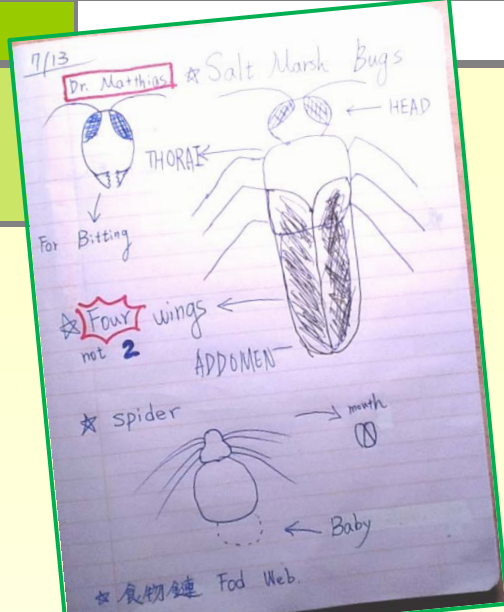 7/13
Dr. Matthias ☆ Salt Marsh Bugs
HEAD
THORAX
For Bitting
☆ Four wings
not 2
ADDOMEN
☆ spider
mouth
Baby
☆ 食物鏈 Fod Web.